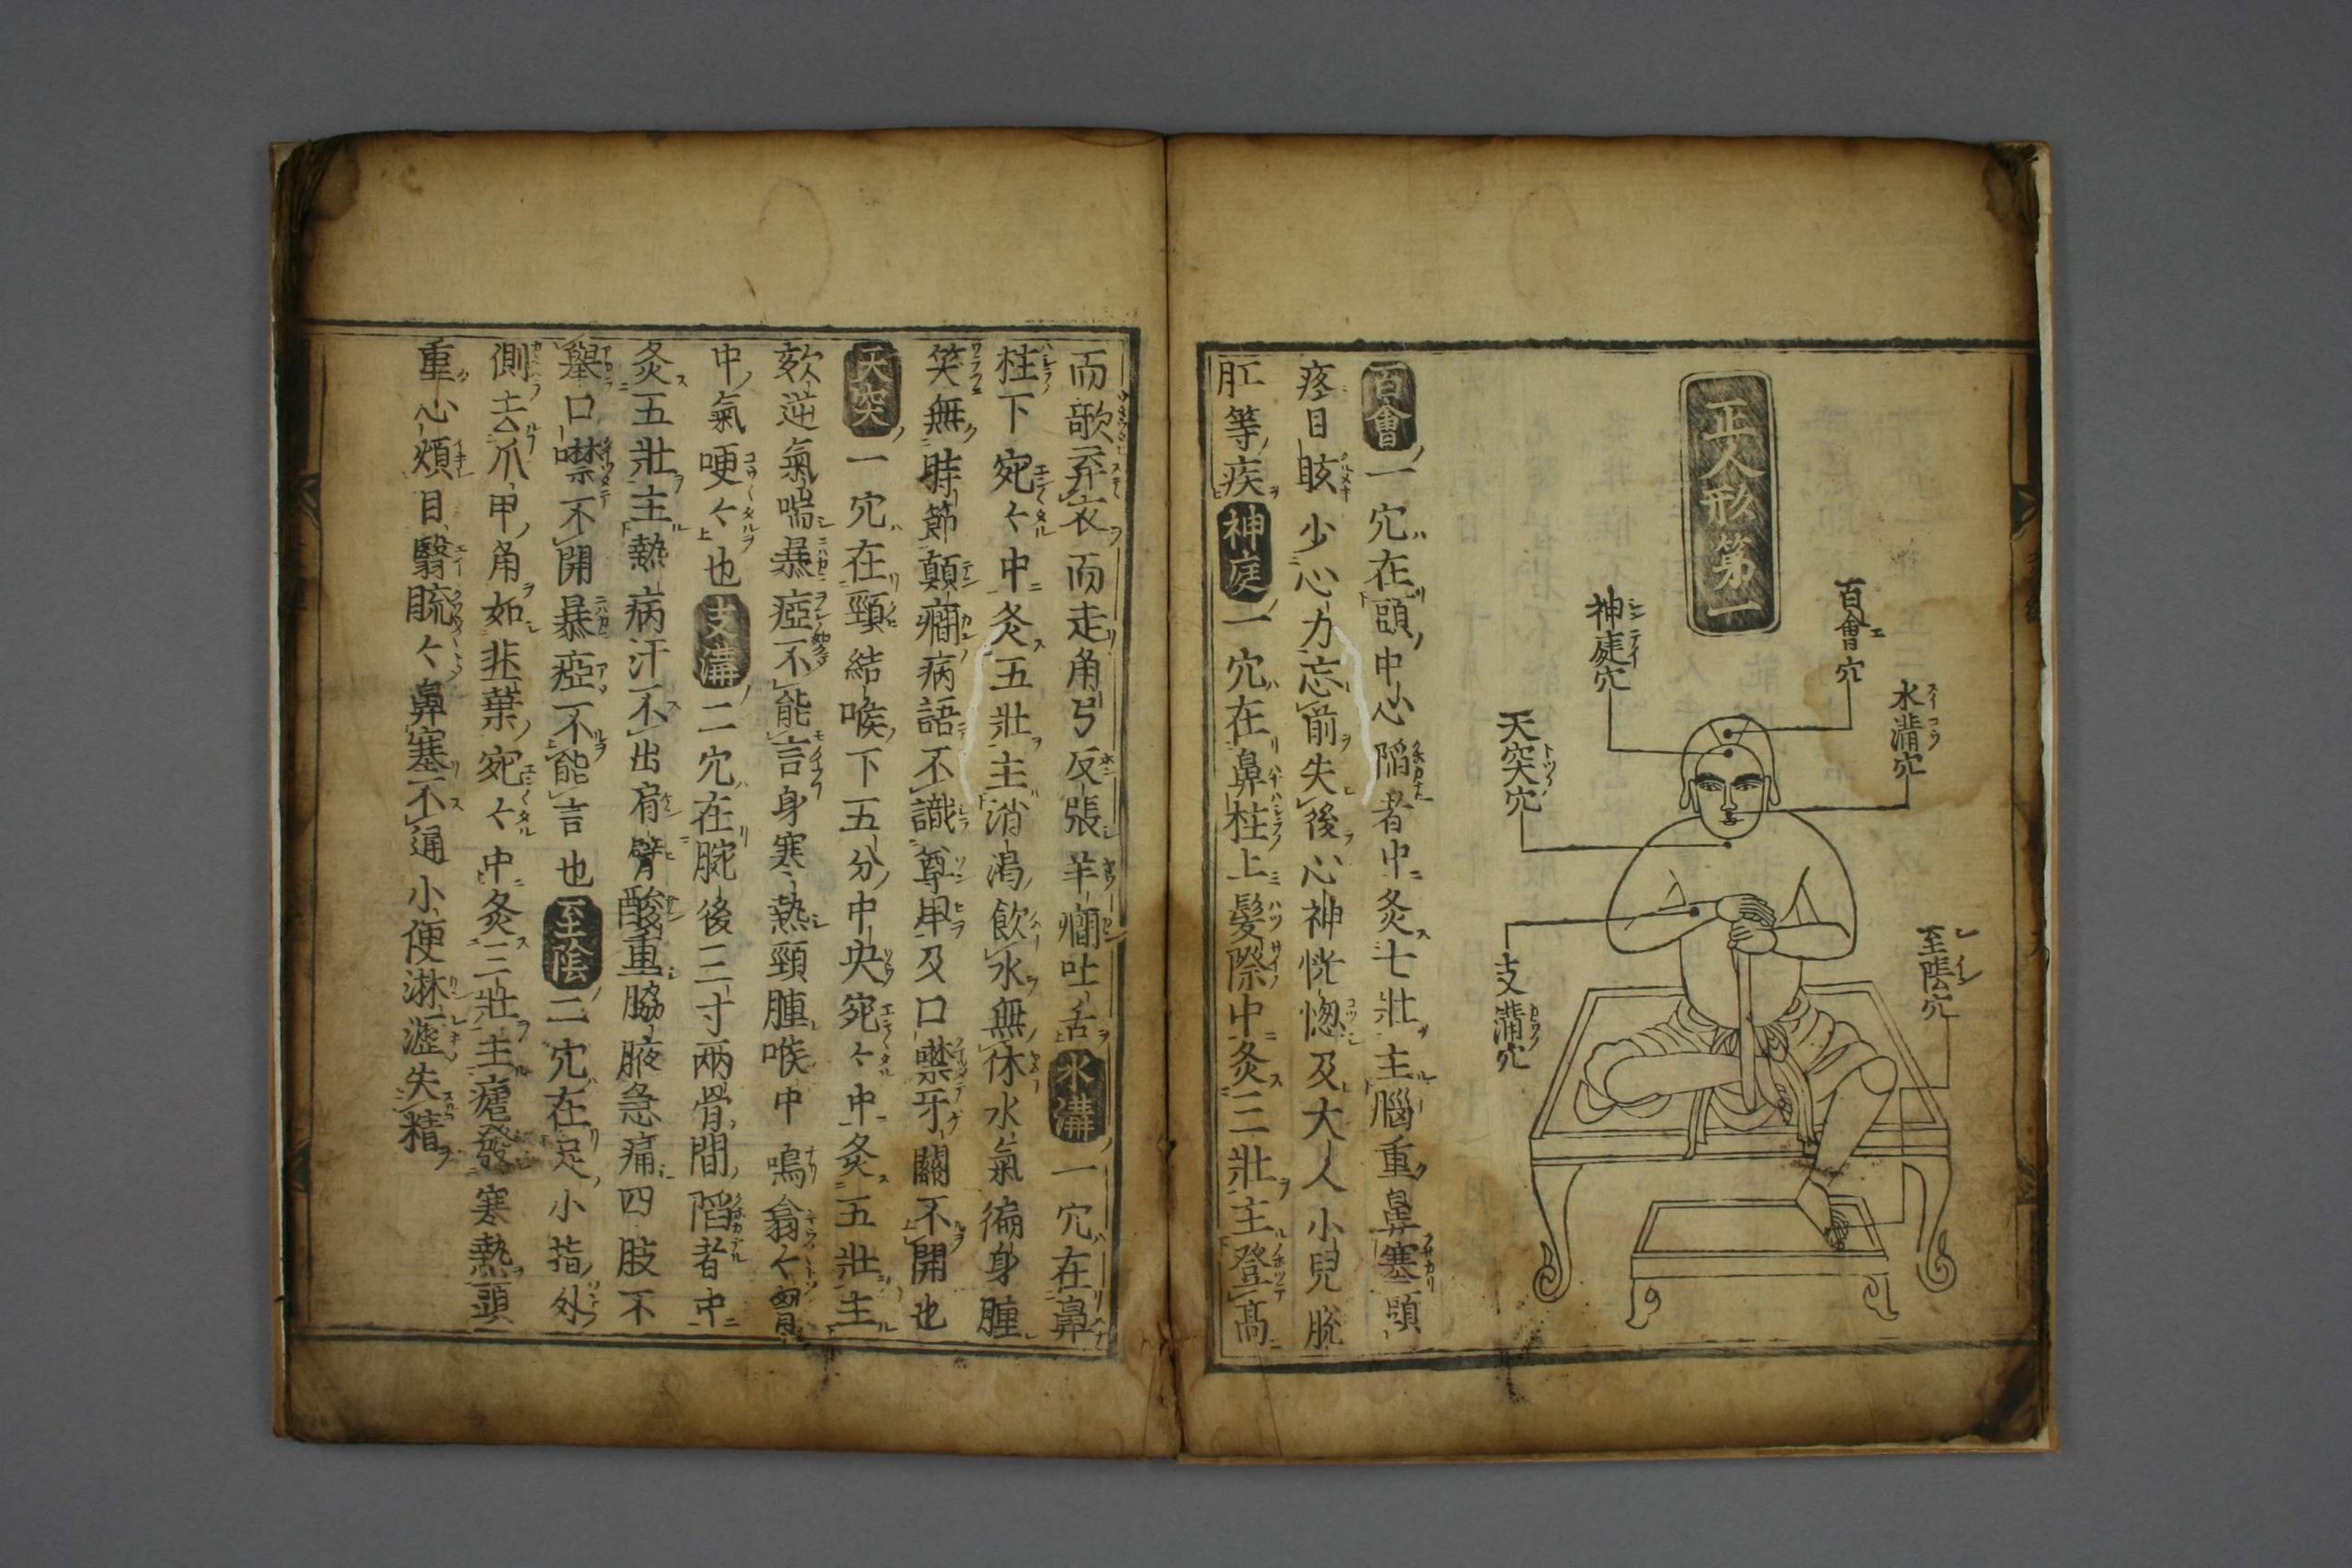 正人形第一
百會穴
水溝穴
神庭穴
天突穴
支溝穴
至陰穴
百會一穴在頭中心陷者中灸七壯主腦重鼻塞頭
疼目眩少心力忘前失後心神恍惚及大人小兒脫
肛等疾神庭一穴在鼻柱上髮際中灸三壯主登高
而歌弃衣而走角弓反張羊癇吐舌水溝一穴在鼻
柱下宛々中灸五壯主消渴飲水無休水氣徧身腫
笑無時節顛癇病語不識尊卑及口噤牙關不開也
天突一穴在頸結喉下五分中央宛々中灸五壯主
欬逆氣喘暴瘂不能言身寒熱頸腫喉中鳴翕々胷
中氣哽々也支溝二穴在腕後三寸兩骨間陷者中
灸五壯主熱病汗不出肩臂酸重脇腋急痛四肢不
舉口噤不開暴瘂不能言也至陰二穴在足小指外
側去爪甲角如韭葉宛々中灸三壯主瘧發寒熱頭
重心煩目翳䀮々鼻塞不通小便淋瀝失精